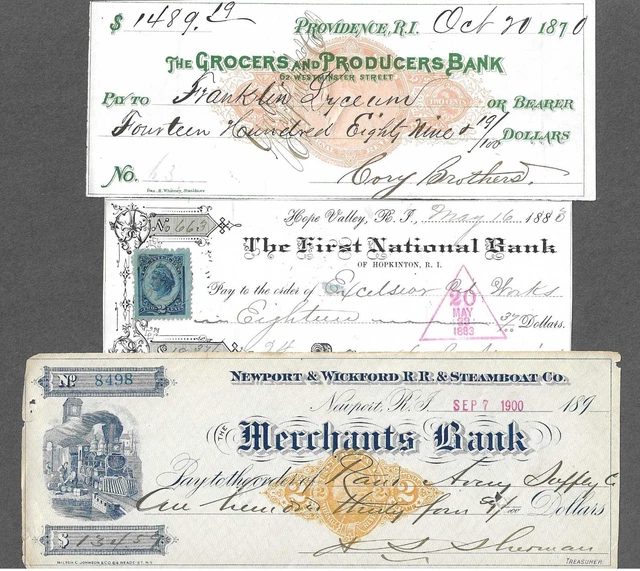 $ 1489.19 PROVIDENCE, R.I. Oct 20 1870
THE GROCERS AND PRODUCERS BANK
62 WESTMINSTER STREET
PAY TO Franklin Lyceum OR BEARER
Fourteen Hundred Eighty Nine & 19/100 DOLLARS
No. 63
Cory Brothers.
No 663 Hope Valley, R. I., May 16 1883
The First National Bank
OF HOPKINTON, R. I.
Pay to the order of Excelsior Works
Eighteen 37/100 Dollars.
20
MAY
23
1883
No 8498 NEWPORT & WICKFORD R.R. & STEAMBOAT CO.
Newport, R. I. SEP 7 1900 189
THE Merchants Bank
Pay to the order of Rand Avery Supply Co
One hundred thirty four 59/100 Dollars
$ 134.59
A S Sherman
TREASURER.